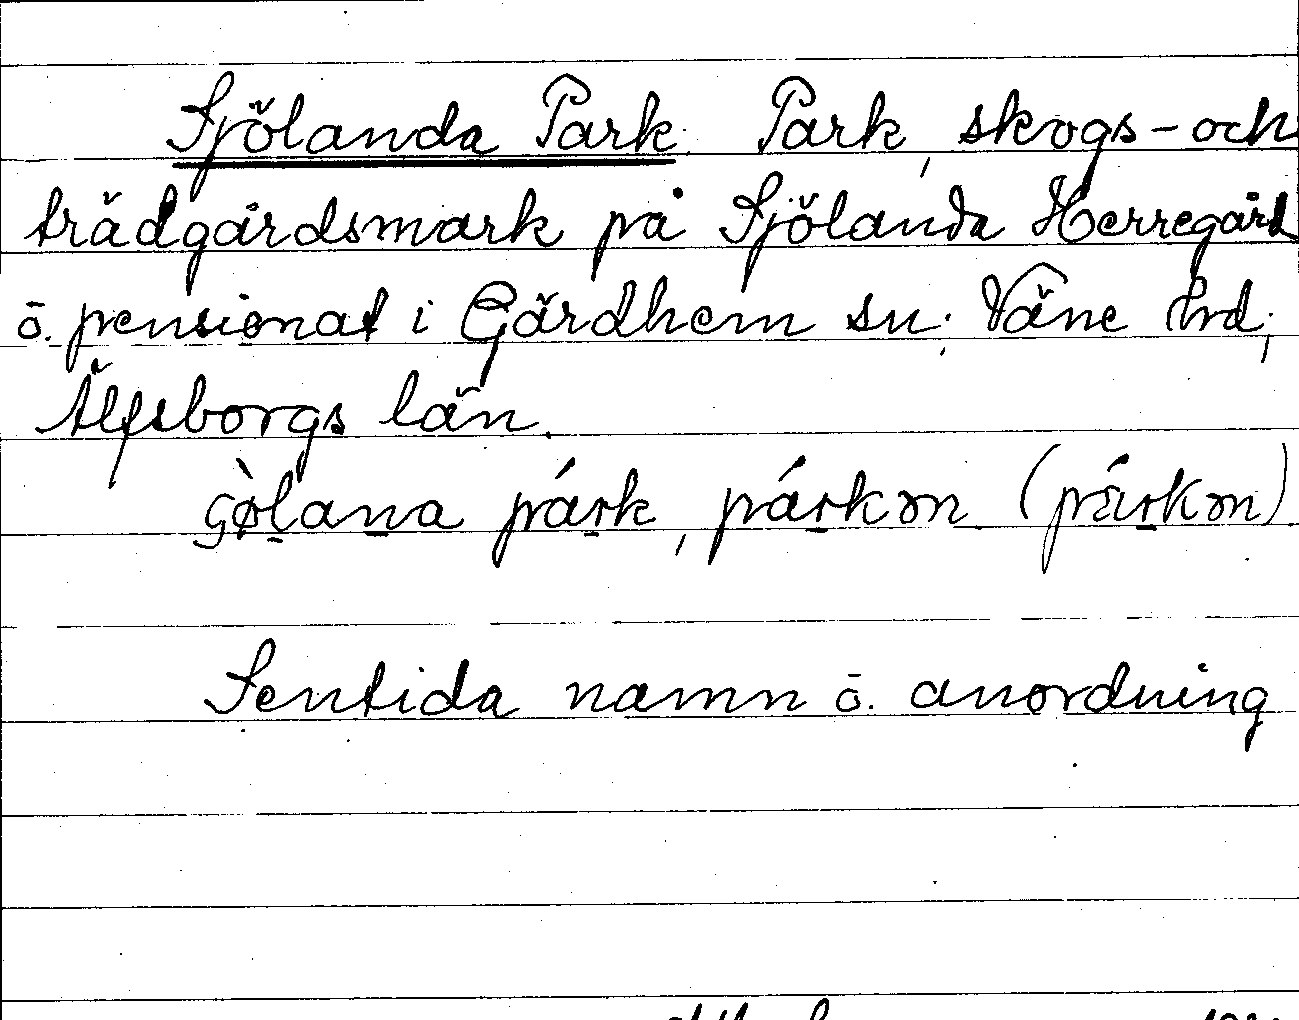 Sjölanda Park. Park, skogs- och
trädgårdsmark på Sjölanda Herregård
o. pensionat i Gärdhem sn; Väne hrd;
Älfsborgs län.
párk, párkən (párkən)
Sentida namn o. anordning